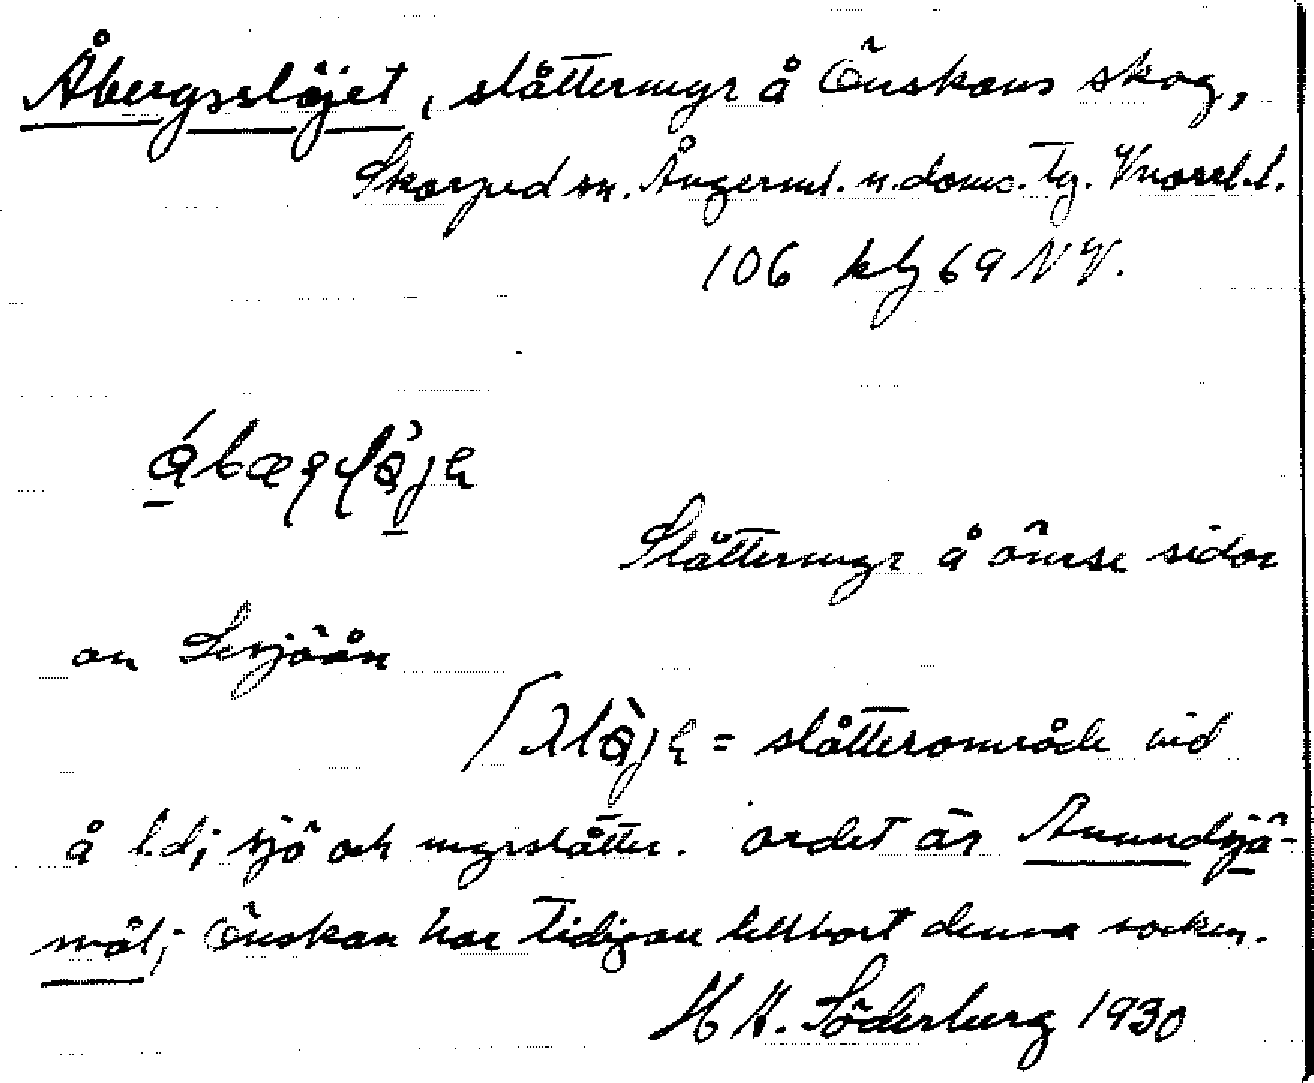 Åbergsslöjet, slåttermyr å Önskans skog,
Skorped sn. Ångerml. n. doms. tg.
106 kbl 69 NV.
Slåttermyr å ömse sidor
om
= slåtterområde vid
å l. d; sjö och myrslåtter. ordet är Anundsjö-
mål; Önskan har tidigare tillhört denna socken.
H H. Söderberg 1930